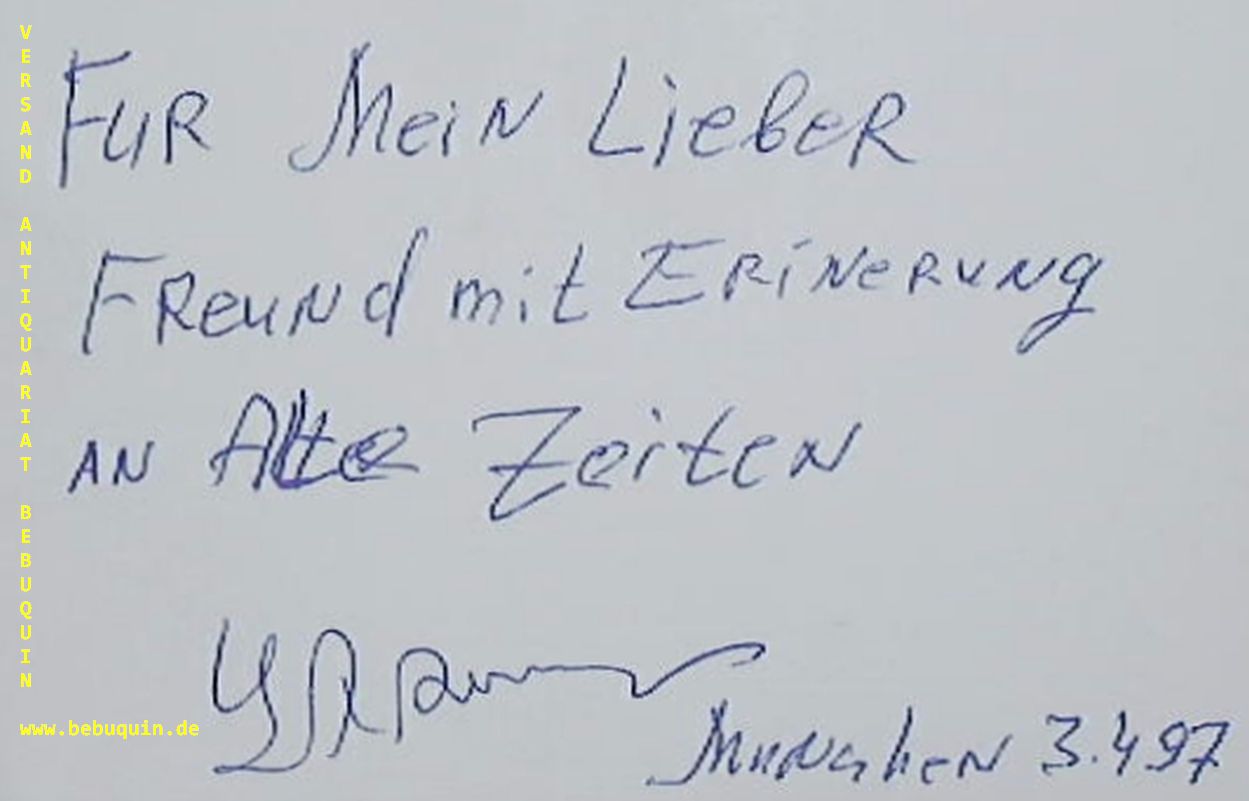 FUR Mein LiebeR
FReuNd mit ERiNeRuNg
AN Alte ZeiteN
MuNcheN 3.4.97
VERSAND ANTIQUARIAT BEBUQUIN
www.bebuquin.de